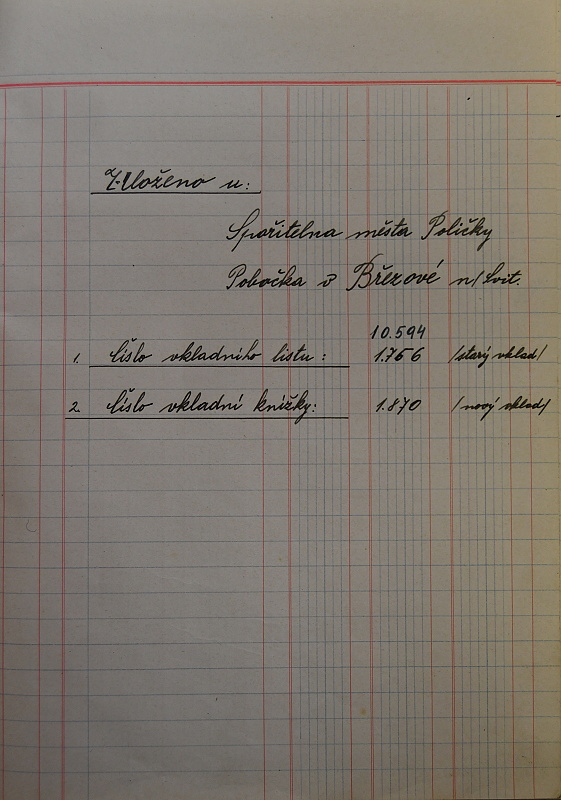 Uloženo u:
Spořitelna města Poličky
Pobočka v Březové n/Svit.
10.594
1. Číslo vkladního listu: 1.756 /starý vklad/
2. Číslo vkladní knížky: 1.870 /nový vklad/